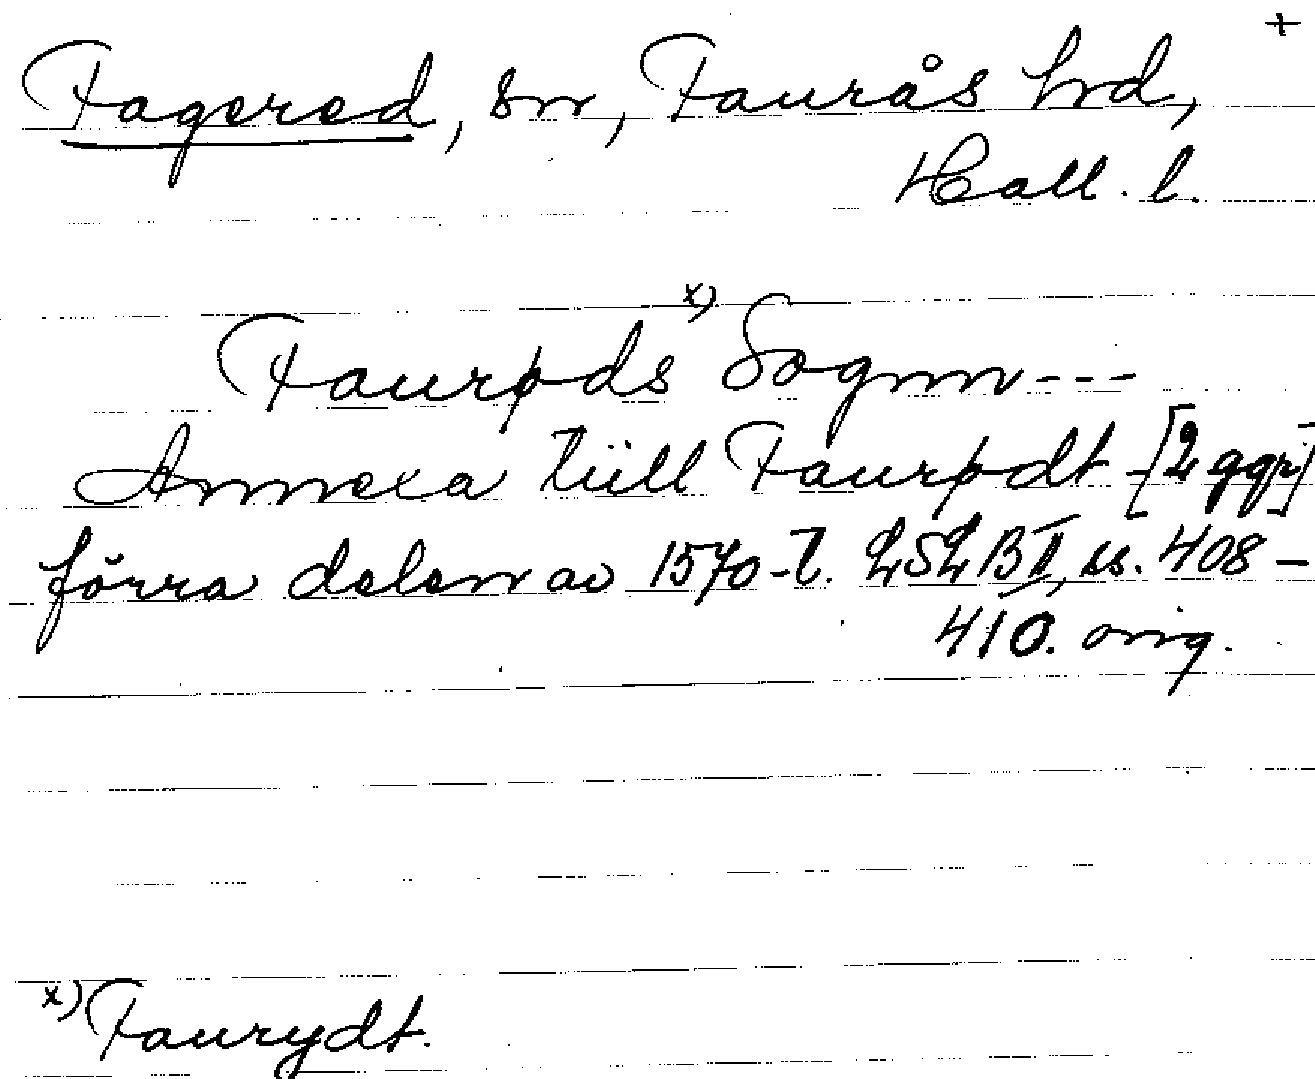 +
Fagered, sn, Faurås hd,
Hall. l.
Faurøds x) Sognn---
Annexa tüll Faurødt [2 ggr]
förra delen av 1570-t. LSLB II, ss. 408-
410. orig.
x) Faurydt.